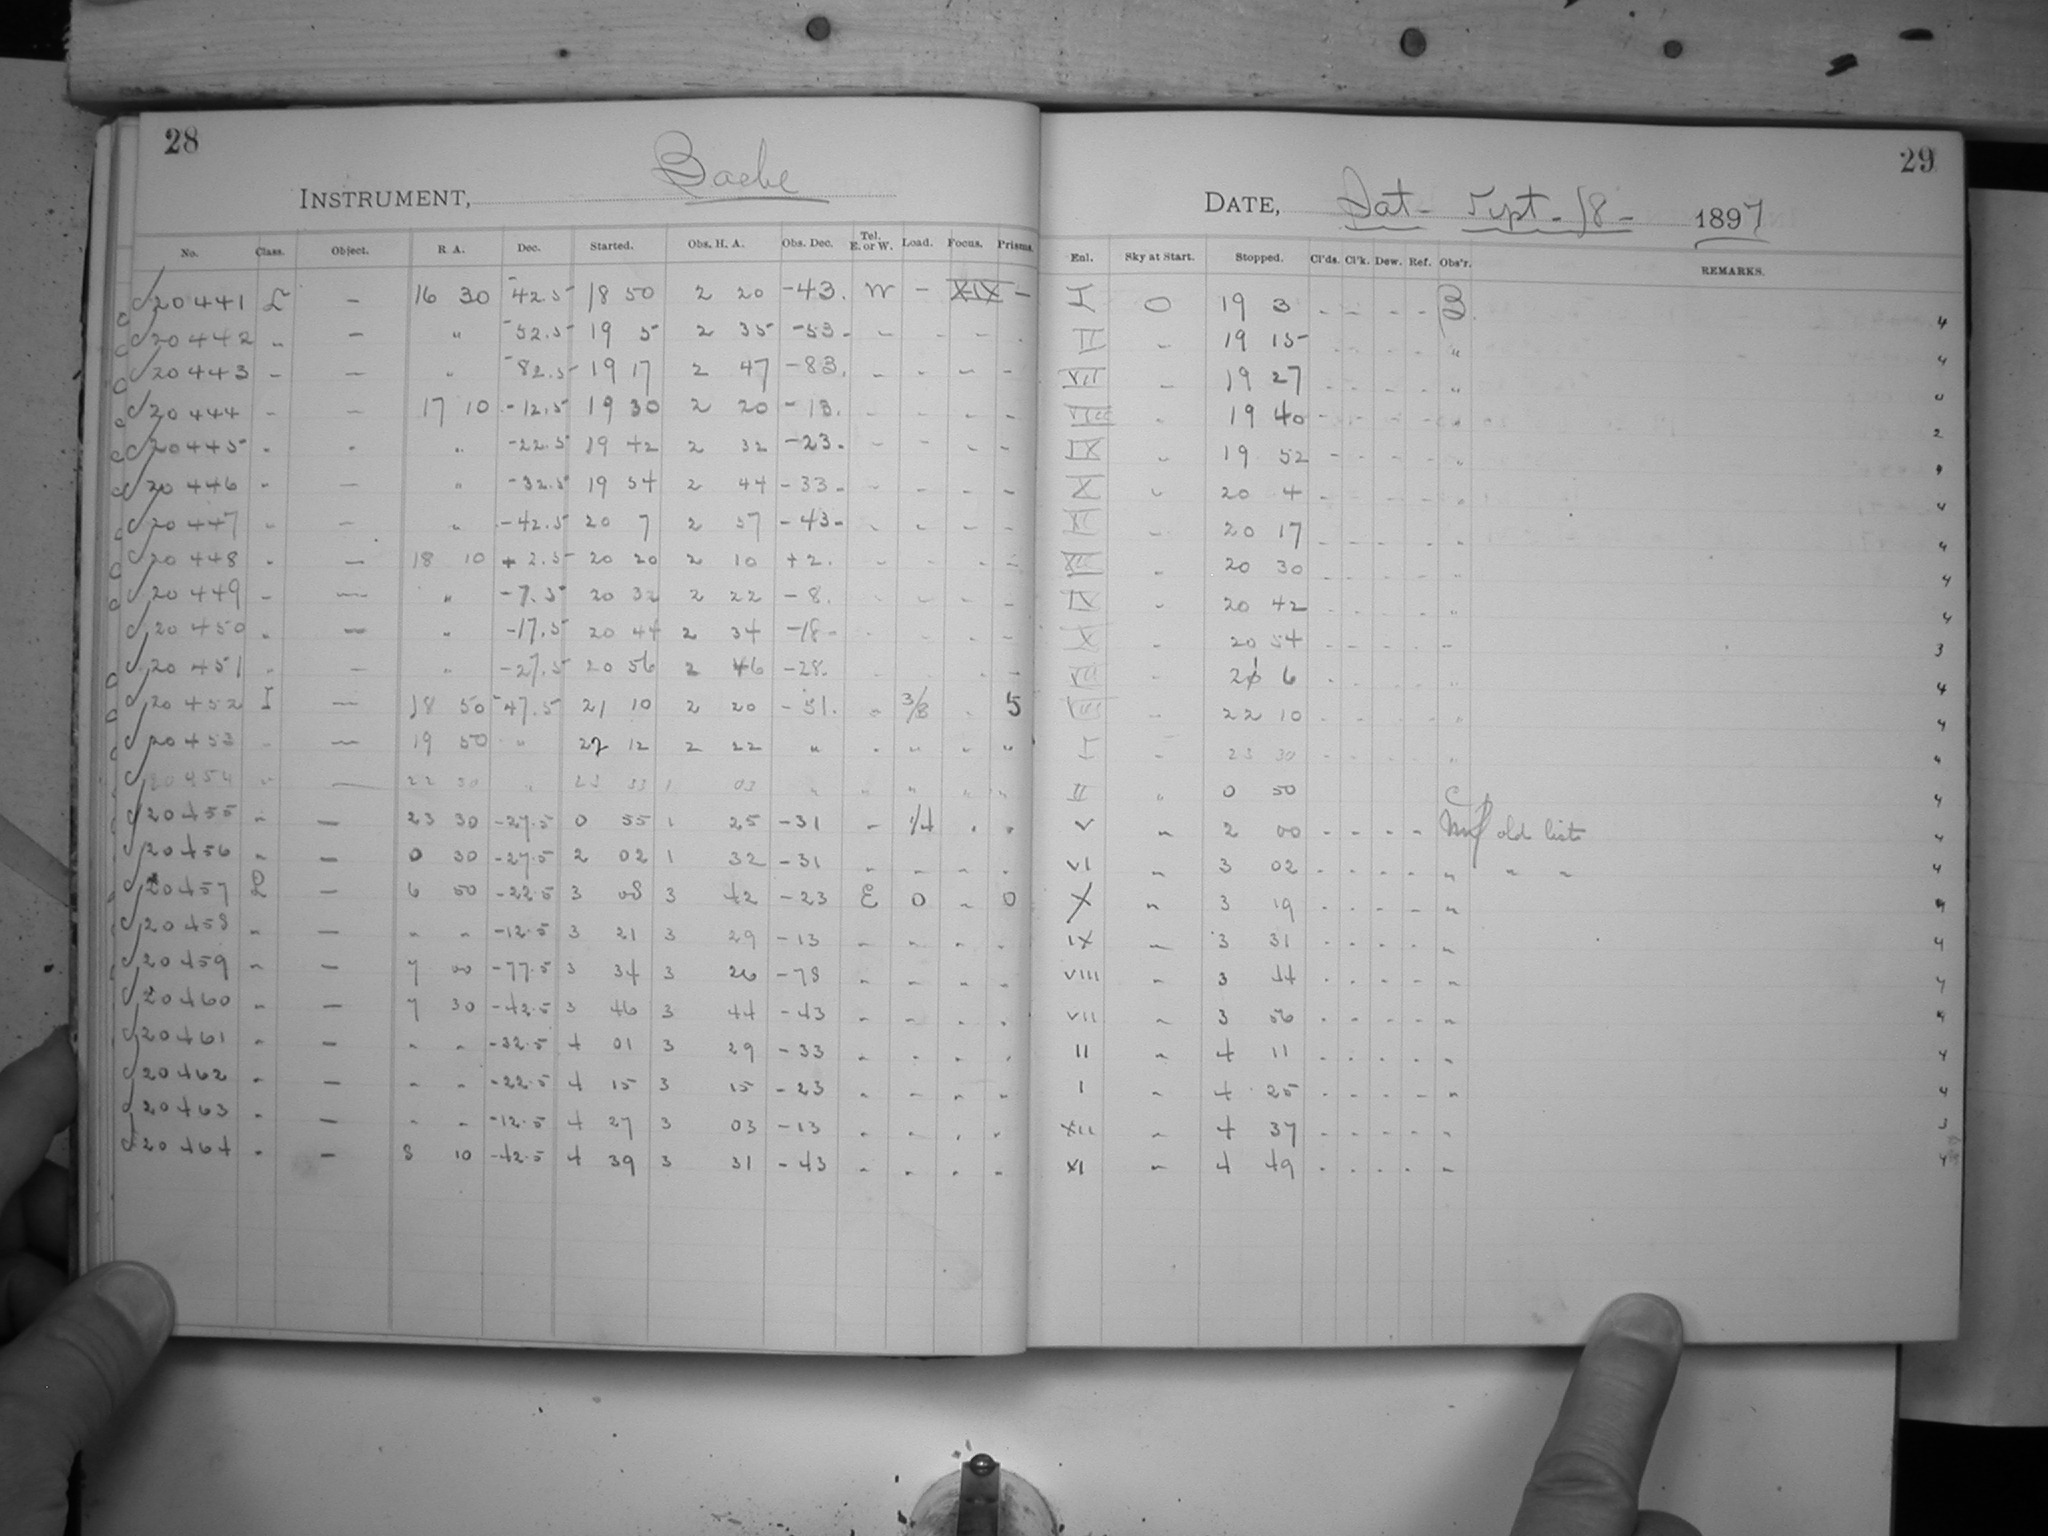 28
INSTRUMENT, Bache
No. Class. Object. R A. Dec. Started. Obs. H. A. Obs. Dec. Tel. E. or W. Load. Focus. Prisms.
20441 L — 16 30 -42.5 18 50 2 20 -43. W - XIX -
20442 " — " -52.5 19 5 2 35 -53 - - - - -
20443 - — " -82.5 19 17 2 47 -83. - - - -
20444 - — 17 10 -12.5 19 30 2 20 -13. - - - -
20445 - - " -22.5 19 42 2 32 -23 - - - - -
20446 - — " -32.5 19 54 2 44 -33 - - - - -
20447 - — " -42.5 20 7 2 57 -43 - - - - -
20448 - — 18 10 +2.5 20 20 2 10 +2. - - - -
20449 - — " -7.5 20 32 2 22 -8. - - - -
20450 " — " -17.5 20 44 2 34 -18 - - - - -
20451 " — " -27.5 20 56 2 46 -28. - - - -
20452 I — 18 50 -47.5 21 10 2 20 -51. " 3/8 - 5
20453 - — 19 50 " 22 12 2 22 " " " " "
20454 " — 22 30 " 23 33 1 03 " " " " "
20455 " — 23 30 -27.5 0 55 1 25 -31 - 1/4 " "
20456 " — 0 30 -27.5 2 02 1 32 -31 " " " "
20457 L — 6 50 -22.5 3 08 3 42 -23 E 0 " 0
20458 " — " " -12.5 3 21 3 29 -13 " " " "
20459 " — 7 00 -77.5 3 34 3 26 -78 " " " "
20460 " — 7 30 -42.5 3 46 3 44 -43 " " " "
20461 " — " " -32.5 4 01 3 29 -33 " " " "
20462 " — " " -22.5 4 15 3 15 -23 " " " "
20463 " — " " -12.5 4 27 3 03 -13 " " " "
20464 " — 8 10 -42.5 4 39 3 31 -43 " " " "
29
DATE, Sat- Sept-18- 1897
Enl. Sky at Start. Stopped. Cl'ds. Cl'k. Dew. Ref. Obs'r. REMARKS.
I 0 19 3 - - - - B. 4
II " 19 15 - - - - " 4
VII - 19 27 - - - - "
VIII " 19 40 - - - - " 2
IX " 19 52 - - - - "
X " 20 4 - - - - " 4
XI - 20 17 - - - - " 4
XII " 20 30 - - - - " 4
IX " 20 42 - - - - " 4
X " 20 54 - - - - 3
VII " 6 - - - - " 4
VIII - 22 10 - - - - " 4
I - 23 30 - - - - " 4
II " 0 50 C 4
V " 2 00 - - - - old list 4
VI " 3 02 - - - - " " " 4
X " 3 19 - - - - "
IX " 3 31 - - - - " 4
VIII " 3 44 - - - - " 4
VII " 3 56 - - - - "
II " 4 11 - - - - " 4
I " 4 25 - - - - " 4
XII " 4 37 - - - - " 3
XI " 4 49 - - - - " 4